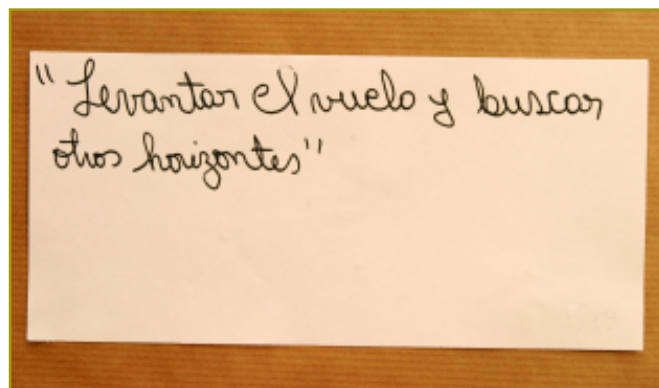 "Levantar el vuelo y buscar
otros horizontes"